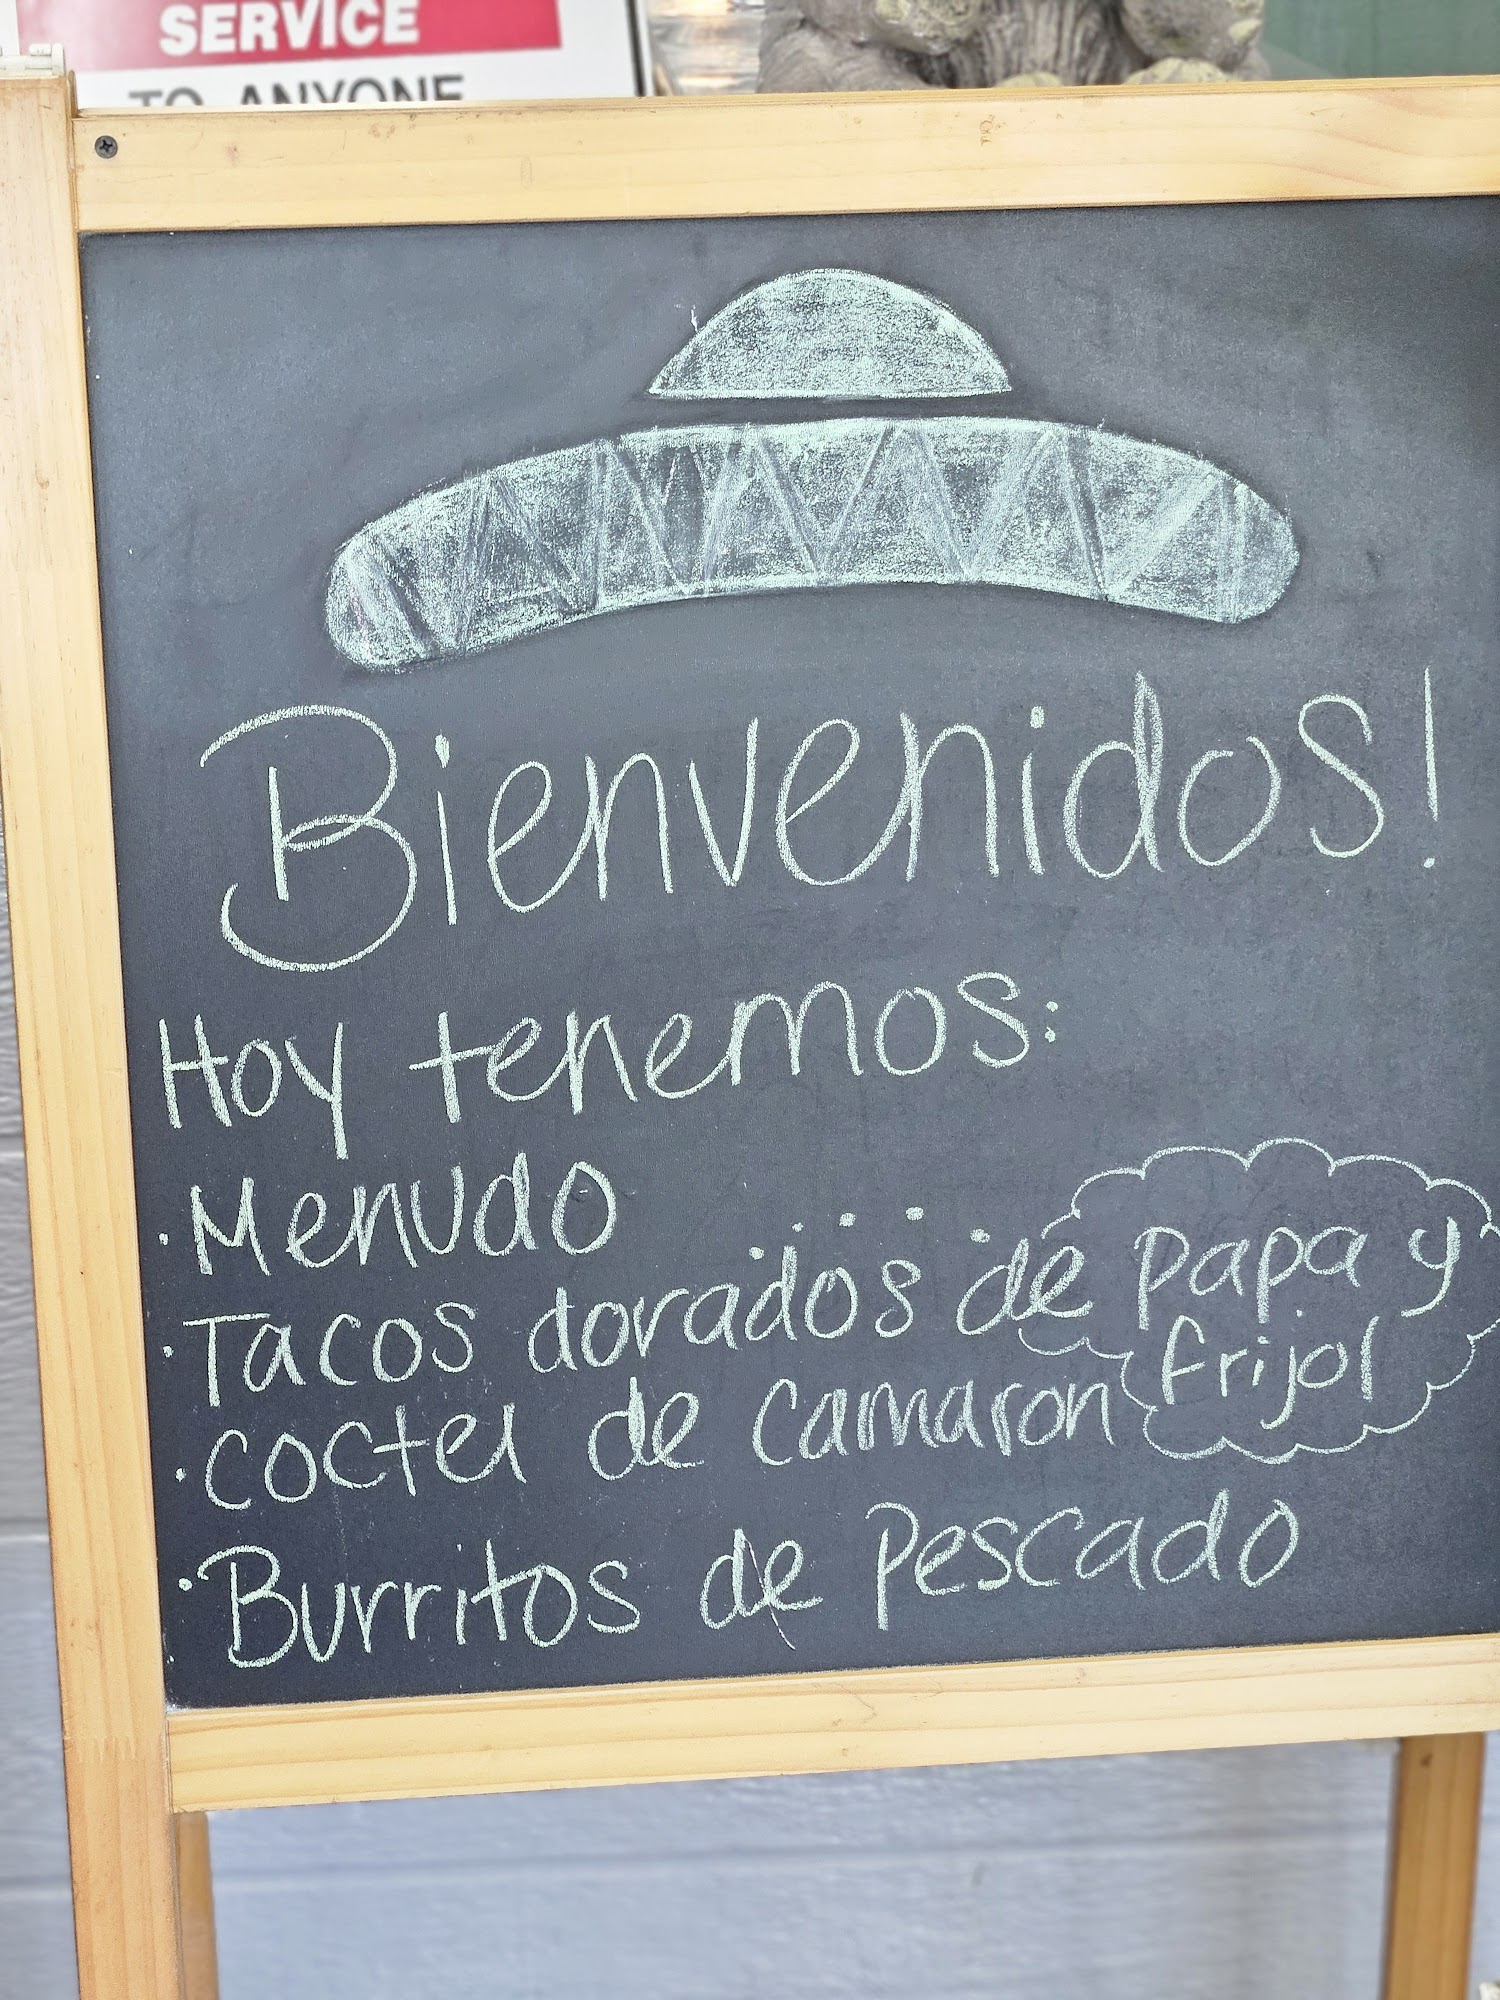 SERVICE
TO ANYONE
Bienvenidos!
Hoy tenemos:
· Menudo
· Tacos dorados de papa y
frijol
· Coctel de camaron
· Burritos de Pescado